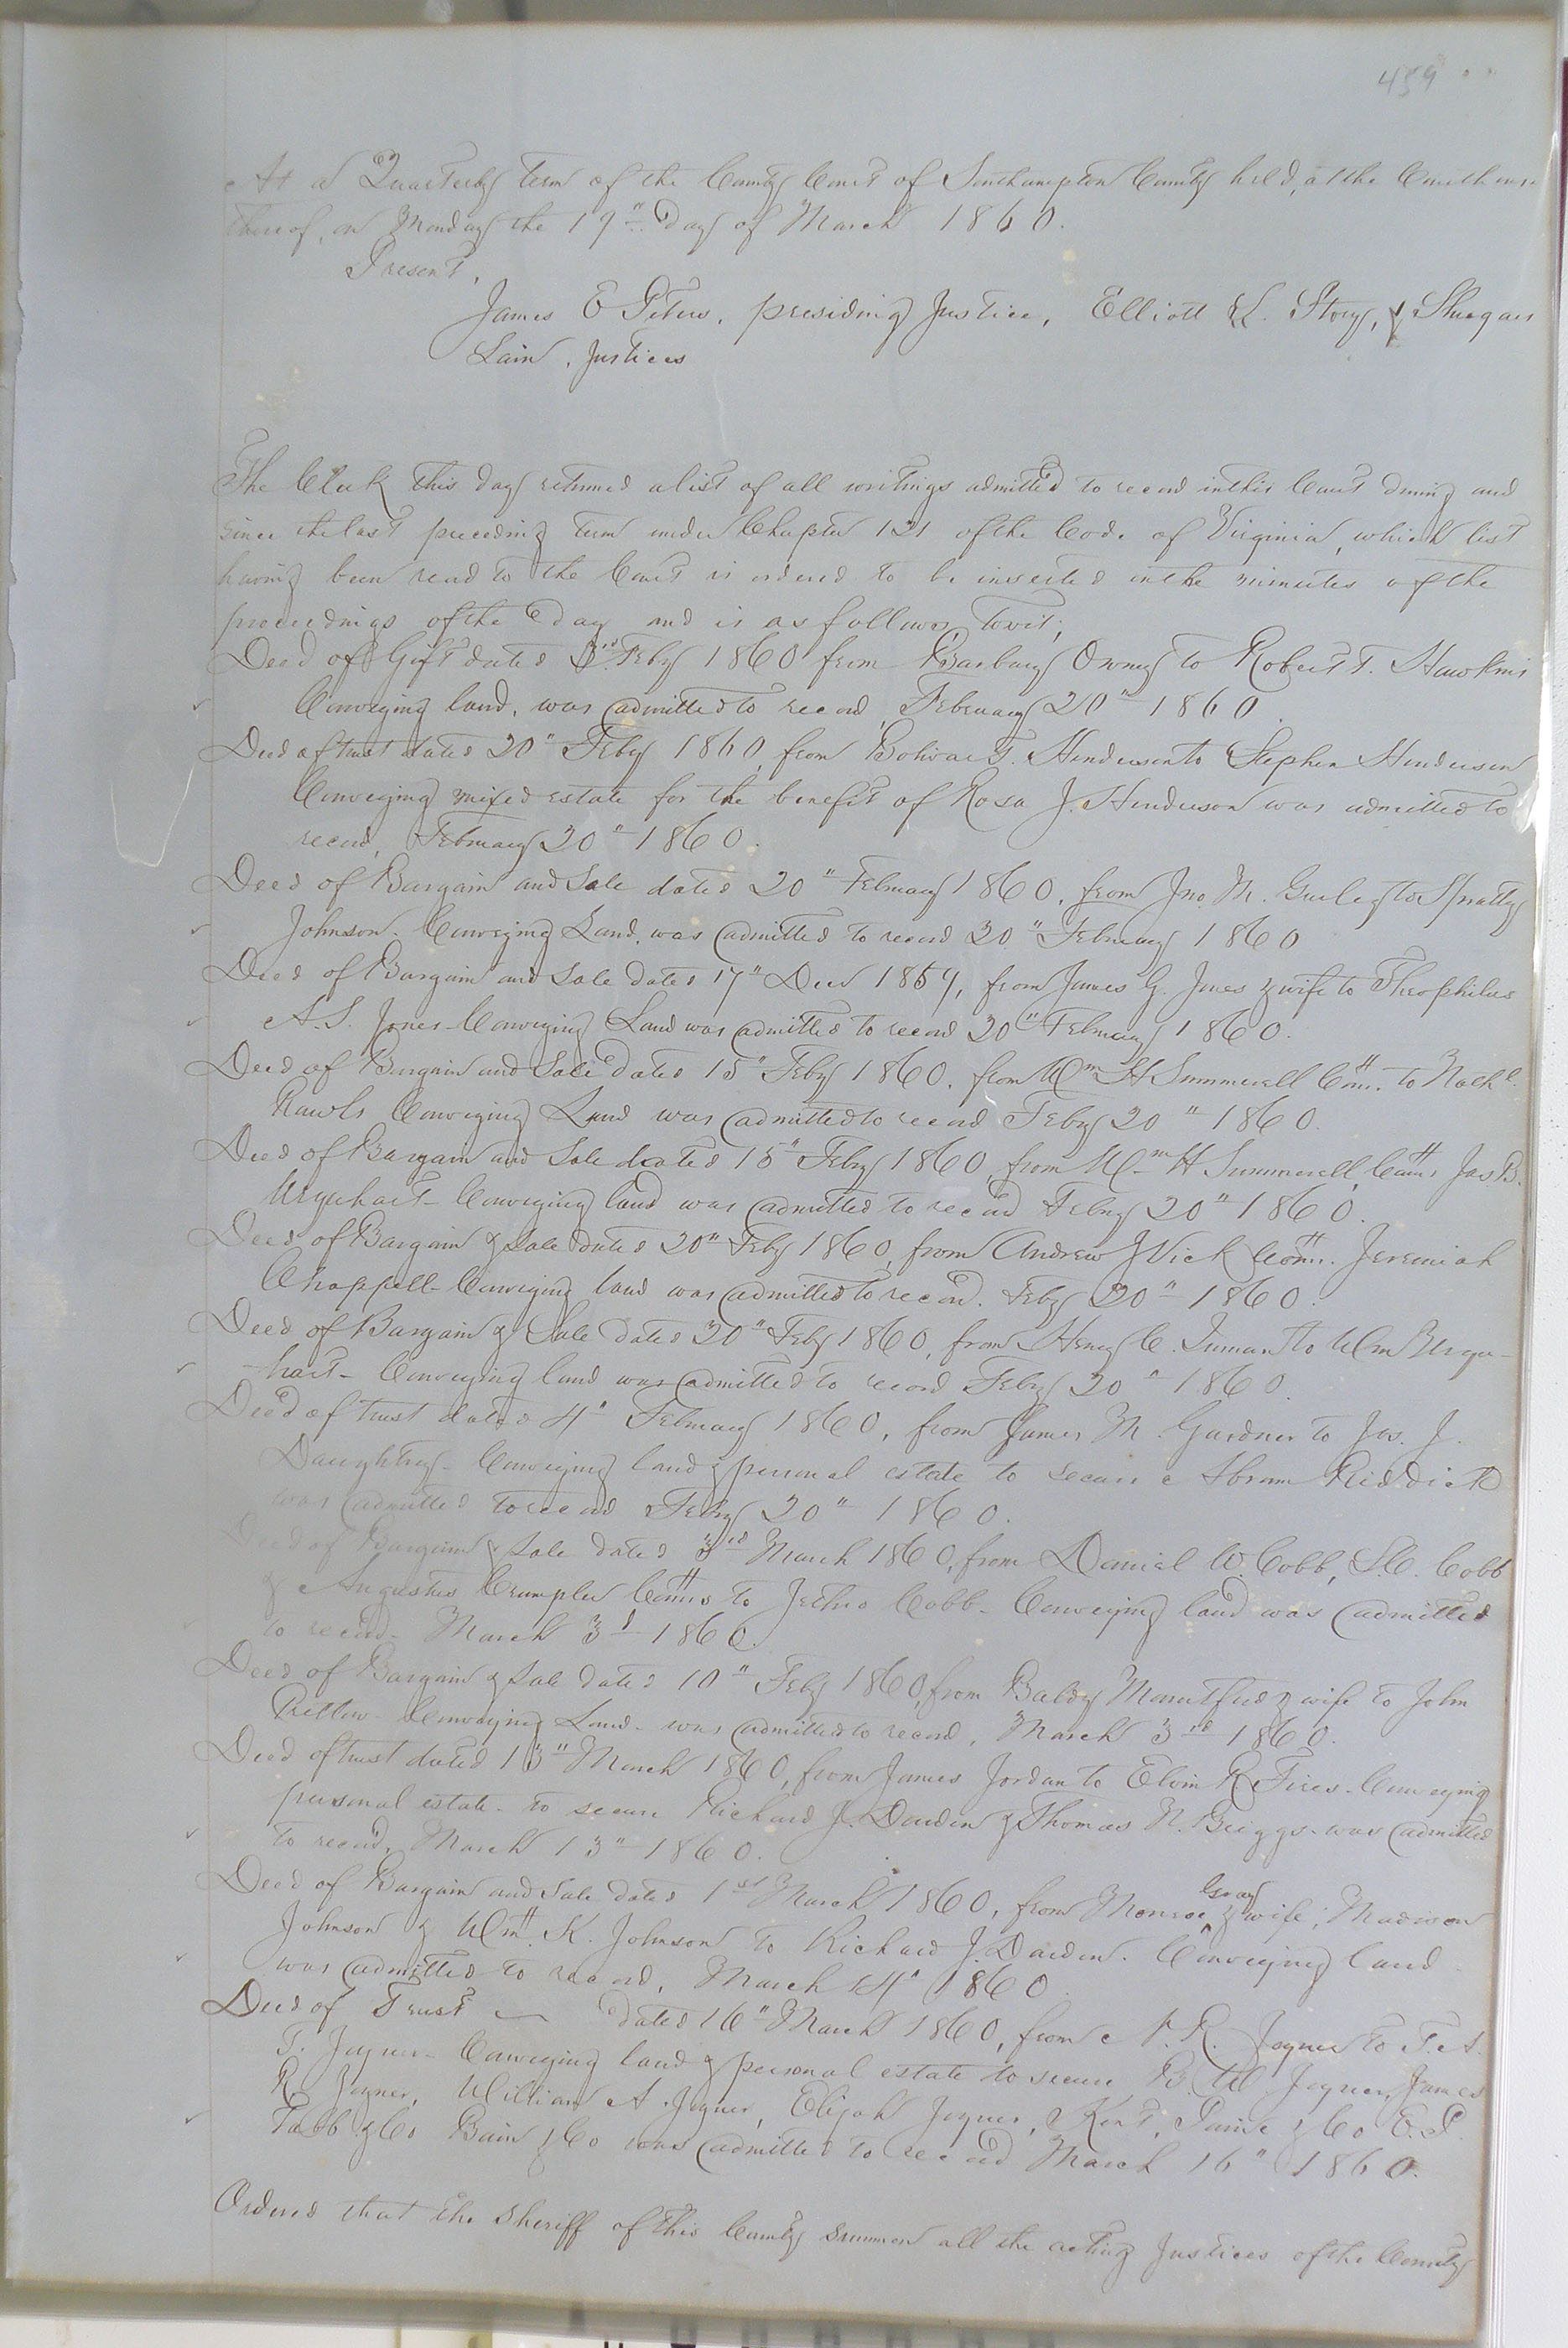 459
At a Quarterly term of the County Court of Southampton County held, at the Courthouse
thereof, on Monday the 19" Day of March 1860.
Present,
James E Peters, presiding Justice, Elliott L. Story, &
Lain, Justices
The Clerk this day returned a list of all writings admitted to record in this Court during and
since the last preceding term under Chapter 121 of the Code of Virginia, which list
having been read to the Court is ordered to be inserted in the minutes of the
proceedings of the day and is as follows, towit;
Deed of Gift dated 3rd Feby 1860 from Barbary Owney to Robert T. Hawkins
Conveying land, was admitted to record, February 20" 1860.
Deed of trust dated 20" Feby 1860, from Bolivar T. Henderson to Stephen Henderson
Conveying mixed estate for the benefit of Rosa J. Henderson was admitted to
record, February 20" 1860.
Deed of Bargain and Sale dated 20" February 1860, from Jno. M. Gurley to Spratly
Johnson. Conveying Land, was admitted to record 20" February 1860
Deed of Bargain and Sale dated 17" Decr 1859, from James G. Jones & wife to Theophilus
A. S. Jones Conveying Land was admitted to record 20" February 1860.
Deed of Bargain and Sale dated 15" Feby 1860, from Wm H Summerell Comr. to Nathl.
Rawls Conveying Land was admitted to record Feby 20" 1860.
Deed of Bargain and Sale dated 15" Feby 1860, from Wm H Summerell, Comr Jas. B.
Urquhart Conveying land was admitted to record Feby 20" 1860.
Deed of Bargain & Sale dated 20" Feby 1860, from Andrew J Vick Comr. Jeremiah
Chappell Conveying land was admitted to record. Feby 20" 1860.
Deed of Bargain & Sale dated 20" Feby 1860, from Henry C. Inman to Wm Urqu-
hart - Conveying land was admitted to record Feby 20" 1860.
Deed of trust dated 4" February 1860, from James M. Gardner to Jas. J.
Daughtrey - Conveying land & personal estate to secure Abram Riddick
was admitted to record Feby 20" 1860.
Deed of Bargain & Sale dated 3rd March 1860, from Daniel W. Cobb, S. C. Cobb
& Augustus Crumpler Comrs to Jethro Cobb - Conveying land was admitted
to record - March 3d 1860.
Deed of Bargain & Sale dated 10" Feby 1860, from Baldy & wife to John
Pretlow - Conveying Land - was admitted to record, March 3rd 1860.
Deed of trust dated 13" March 1860, from James Jordan to Elvin R Fires - Conveying
personal estate - to secure Richard J. Darden & Thomas N. Briggs - was admitted
to record, March 13" 1860.
Deed of Bargain and Sale dated 1st March 1860, from Monroe Gray & wife; Madison
Johnson & Wm. K. Johnson to Richard J. Darden. Conveying land
was admitted to record, March 14" 1860
Deed of Trust dated 16" March 1860, from A. R. Joyner to T. A.
T. Joyner - Conveying land & personal estate to secure B. W. Joyner, James
R Joyner, William A. Joyner, Elijah Joyner, Kent, Paine & Co E. P.
Tabb & Co Bain & Co was admitted to record March 16" 1860.
Ordered that the Sheriff of this County summon all the acting Justices of the County